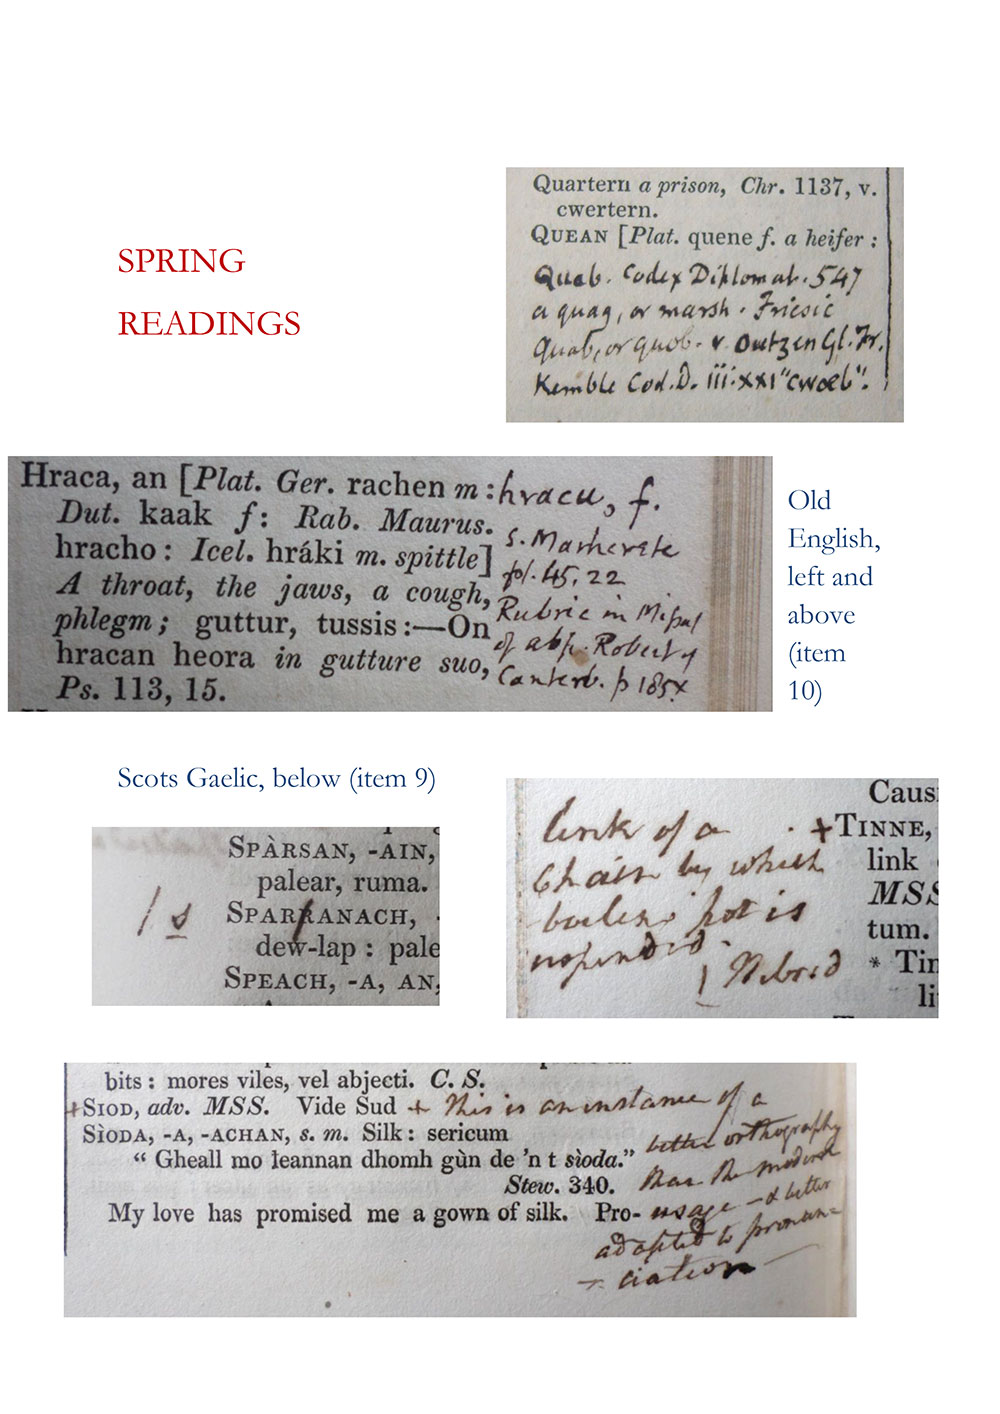 SPRING
READINGS
Quartern a prison, Chr. 1137, v.
cwertern.
QUEAN [Plat. quene f. a heifer :
Quab. Codex Diplomat. 547
a quag, or marsh. Friesic
Quab, or quob. v. Outzen Gl. Fr.
Kemble Cod. D. iii. xxi "cwaeb".
Hraca, an [Plat. Ger. rachen m :
Dut. kaak f: Rab. Maurus.
hracho : Icel. hráki m. spittle]
A throat, the jaws, a cough,
phlegm; guttur, tussis:—On
hracan heora in gutture suo,
Ps. 113, 15.
hracu, f.
s. Marherete
fol. 45. 22
Rubric in Missal
of abp. Robert of
Canterb. p 185
Old
English,
left and
above
(item
10)
Scots Gaelic, below (item 9)
SPÀRSAN, -AIN,
palear, ruma.
/ s
SPARRANACH,
dew-lap : pale
SPEACH, -A, AN,
link of a
Chain by which
boiling pot is
suspended.
Caus
+TINNE,
link
MSS
tum.
* Tin
li
bits : mores viles, vel abjecti. C. S.
+SIOD, adv. MSS. Vide Sud + This is an instance of a
better orthography
than the modern
usage — & better
adapted to pronun-
ciation
SÌODA, -A, -ACHAN, s. m. Silk : sericum
“ Gheall mo leannan dhomh gùn de 'n t sìoda.”
Stew. 340.
My love has promised me a gown of silk. Pro-